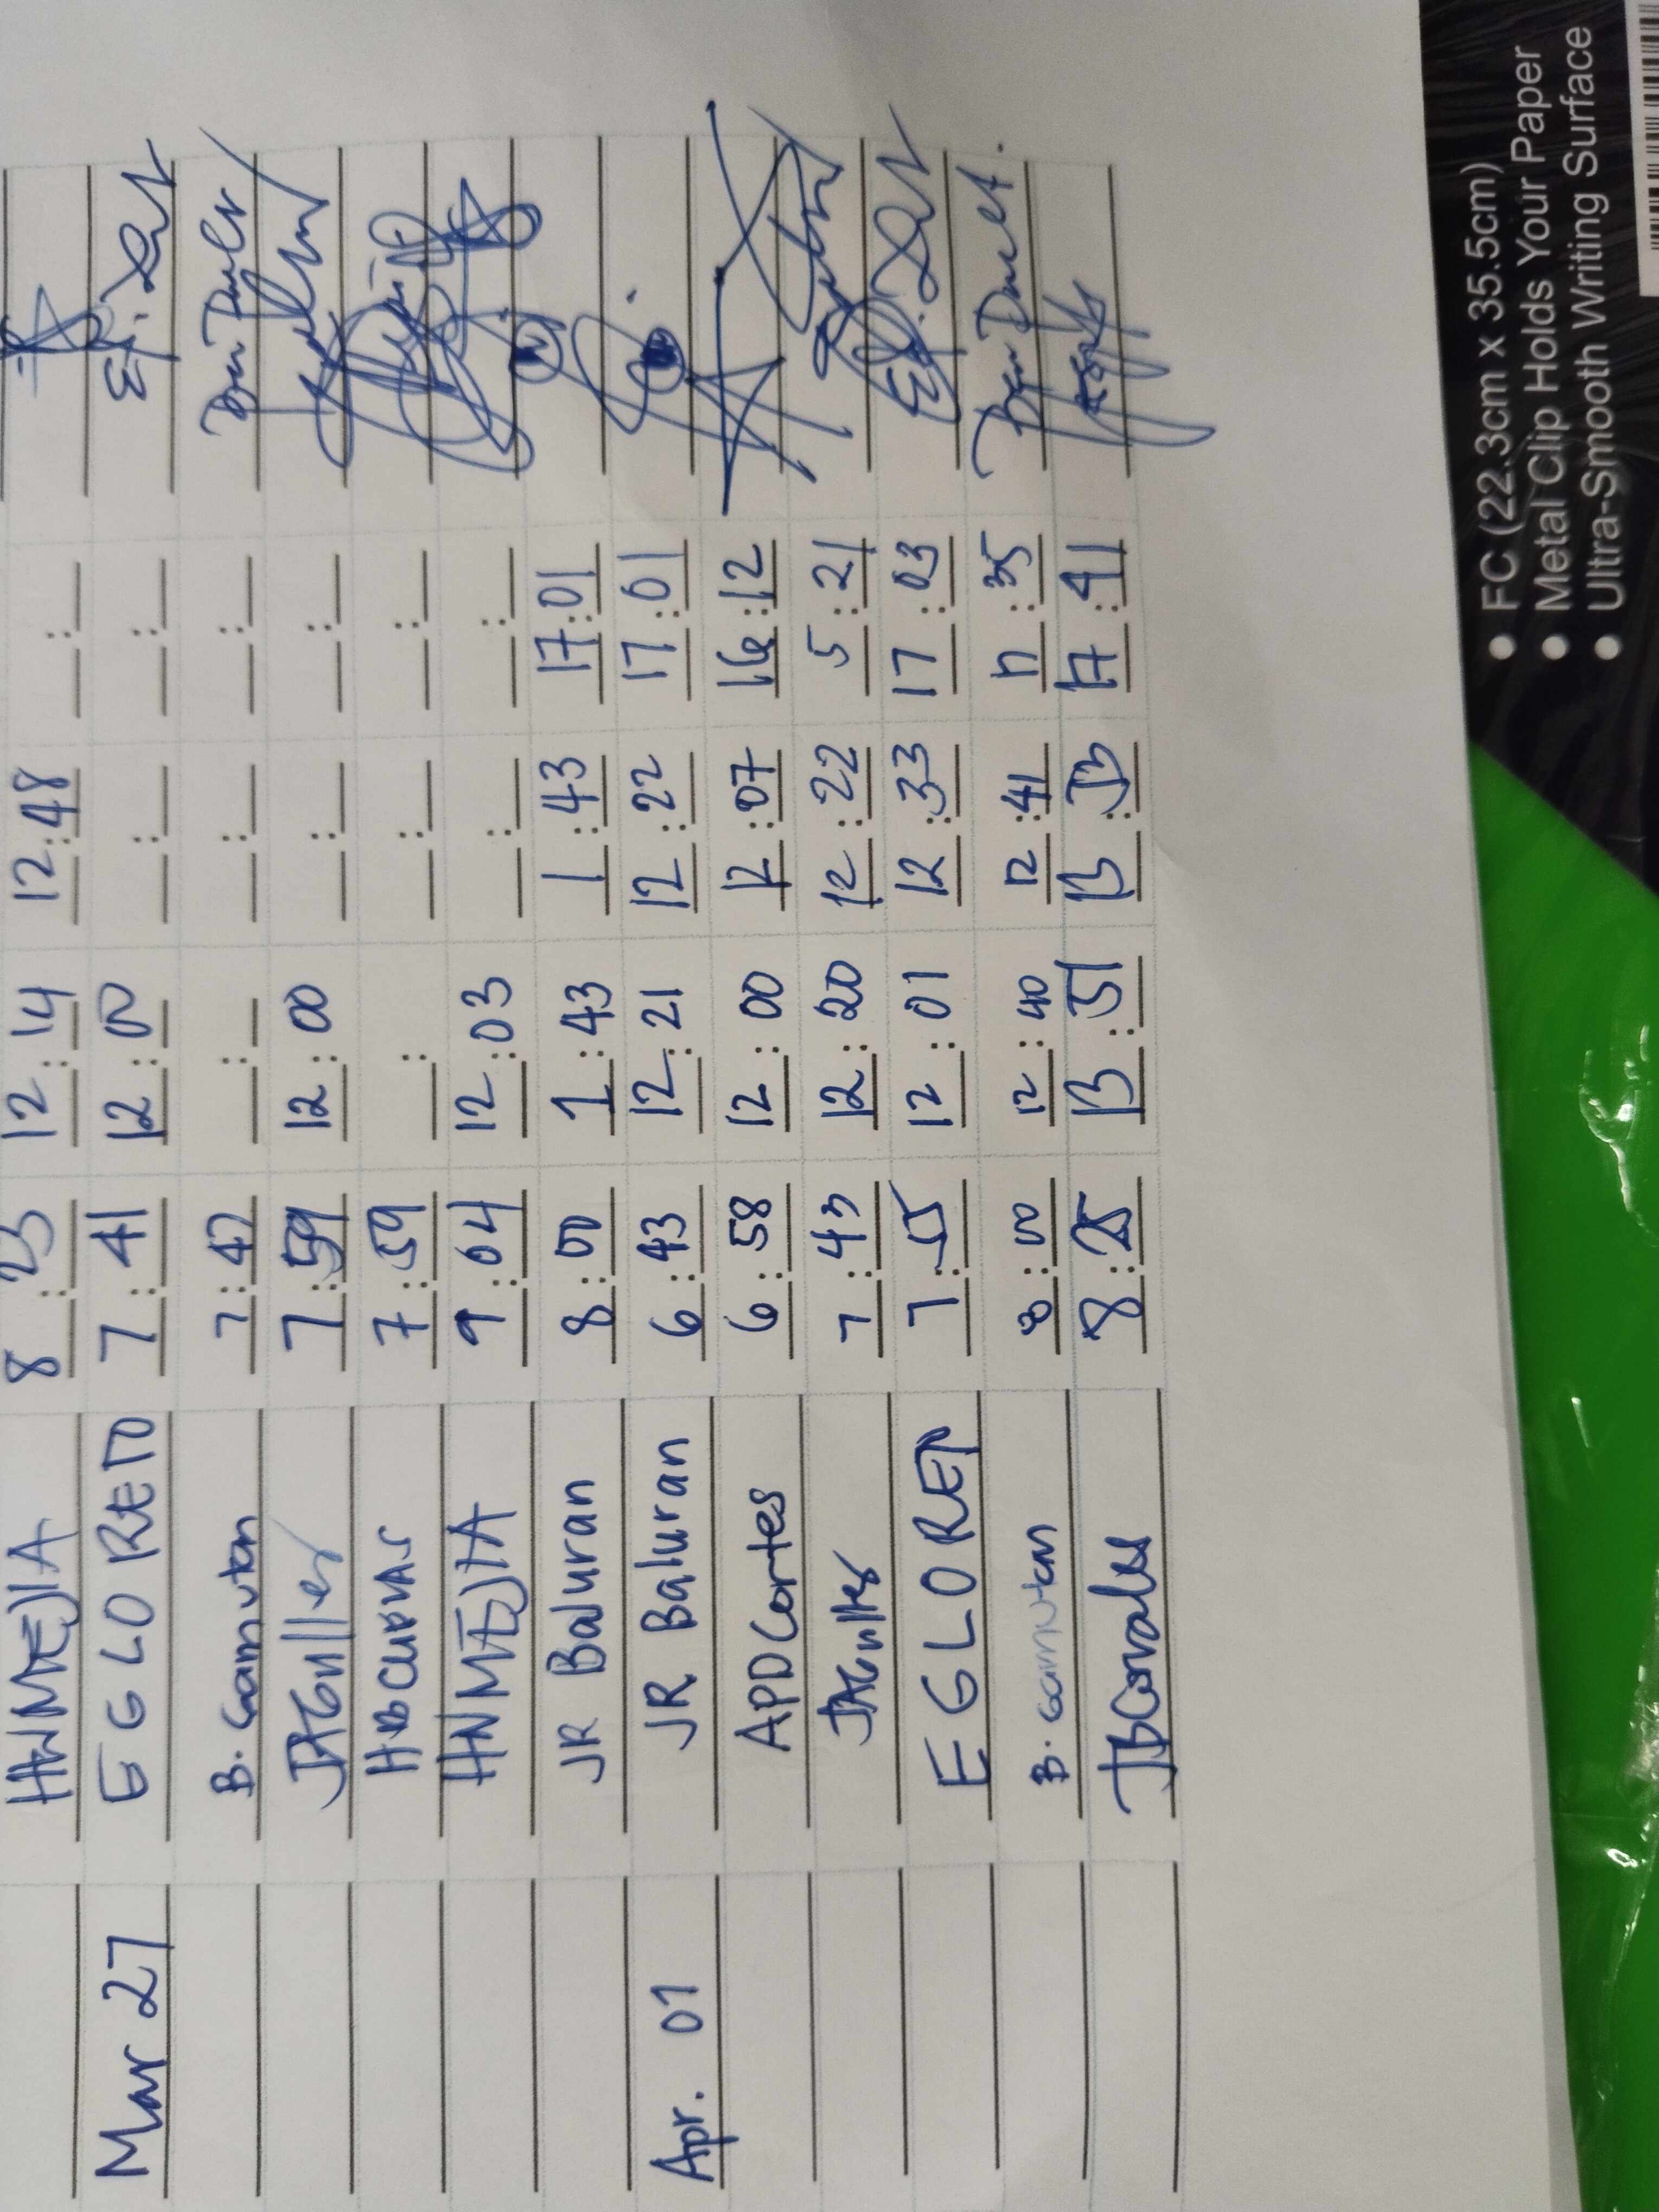 HNMEJIA 8:23 12:14 12:48
Mar 27 EGLORETO 7:41 12:00
B. Gamutan 7:47
JAGuller 7:59 12:00
HBCUEVAS 7:59
HNMEJIA 9:04 12:03
JR Baluran 8:00 1:43 1:43 17:01
Apr. 01 JR Baluran 6:43 12:21 12:22 17:01
APDCortes 6:58 12:00 12:07 16:12
JAGuller 7:43 12:20 12:22 5:21
EGLORETO 7:55 12:01 12:33 17:03
B. Gamutan 8:00 12:40 12:41 17:35
8:25 13:51 17:41
FC (22.3cm x 35.5cm)
Metal Clip Holds Your Paper
Ultra-Smooth Writing Surface